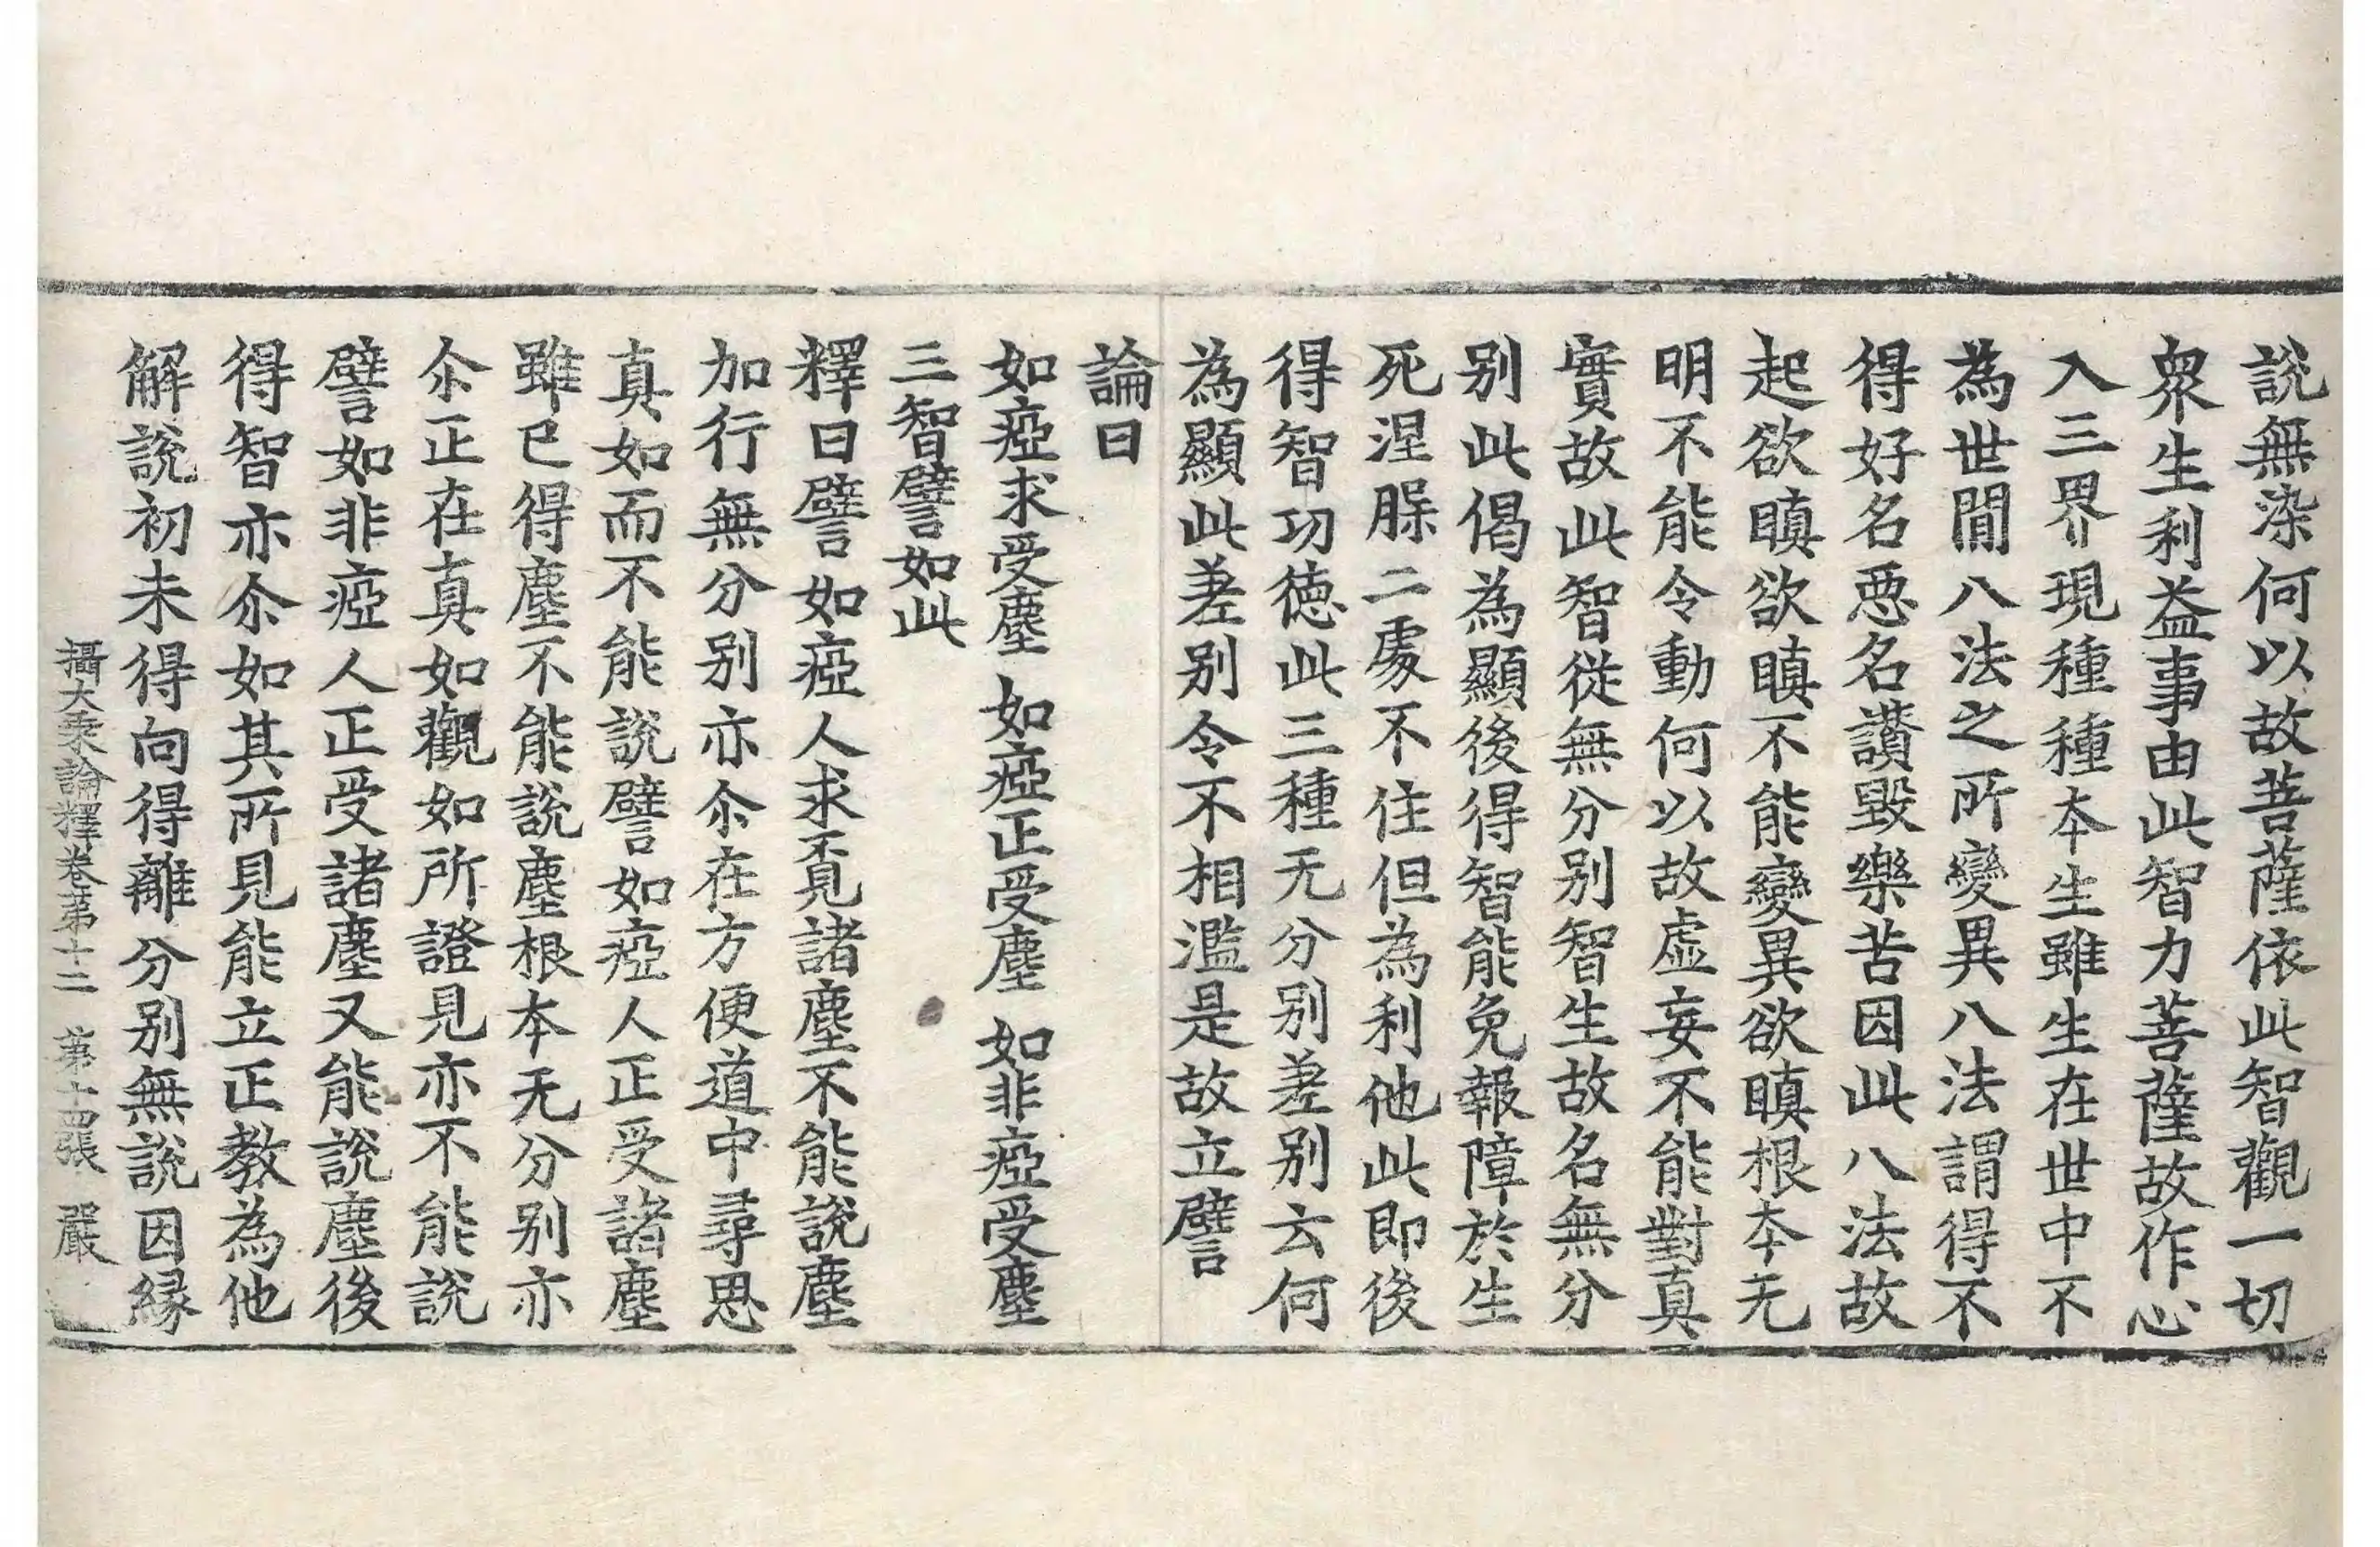 說無染何以故菩薩依此智觀一切
衆生利益事由此智力菩薩故作心
入三界現種種本生雖生在世中不
為世間八法之所變異八法謂得不
得好名悪名讚毀樂苦因此八法故
起欲瞋欲瞋不能變異欲瞋根本无
明不能令動何以故虚妄不能對真
實故此智從無分别智生故名無分
别此偈為顯後得智能免報障於生
死涅脲二處不住但為利他此即後
得智功徳此三種无分别差别云何
為顯此差别令不相濫是故立譬
論曰
如瘂求受塵 如瘂正受塵 如非瘂受塵
三智譬如此
釋曰譬如瘂人求覔諸塵不能說塵
加行無分别亦尒在方便道中尋思
真如而不能說譬如瘂人正受諸塵
雖已得塵不能說塵根本无分别亦
尒正在真如觀如所證見亦不能說
譬如非瘂人正受諸塵又能說塵後
得智亦尒如其所見能立正教為他
解說初未得向得離分别無說因縁
攝大乗論釋卷苐十二 苐十四張 嚴